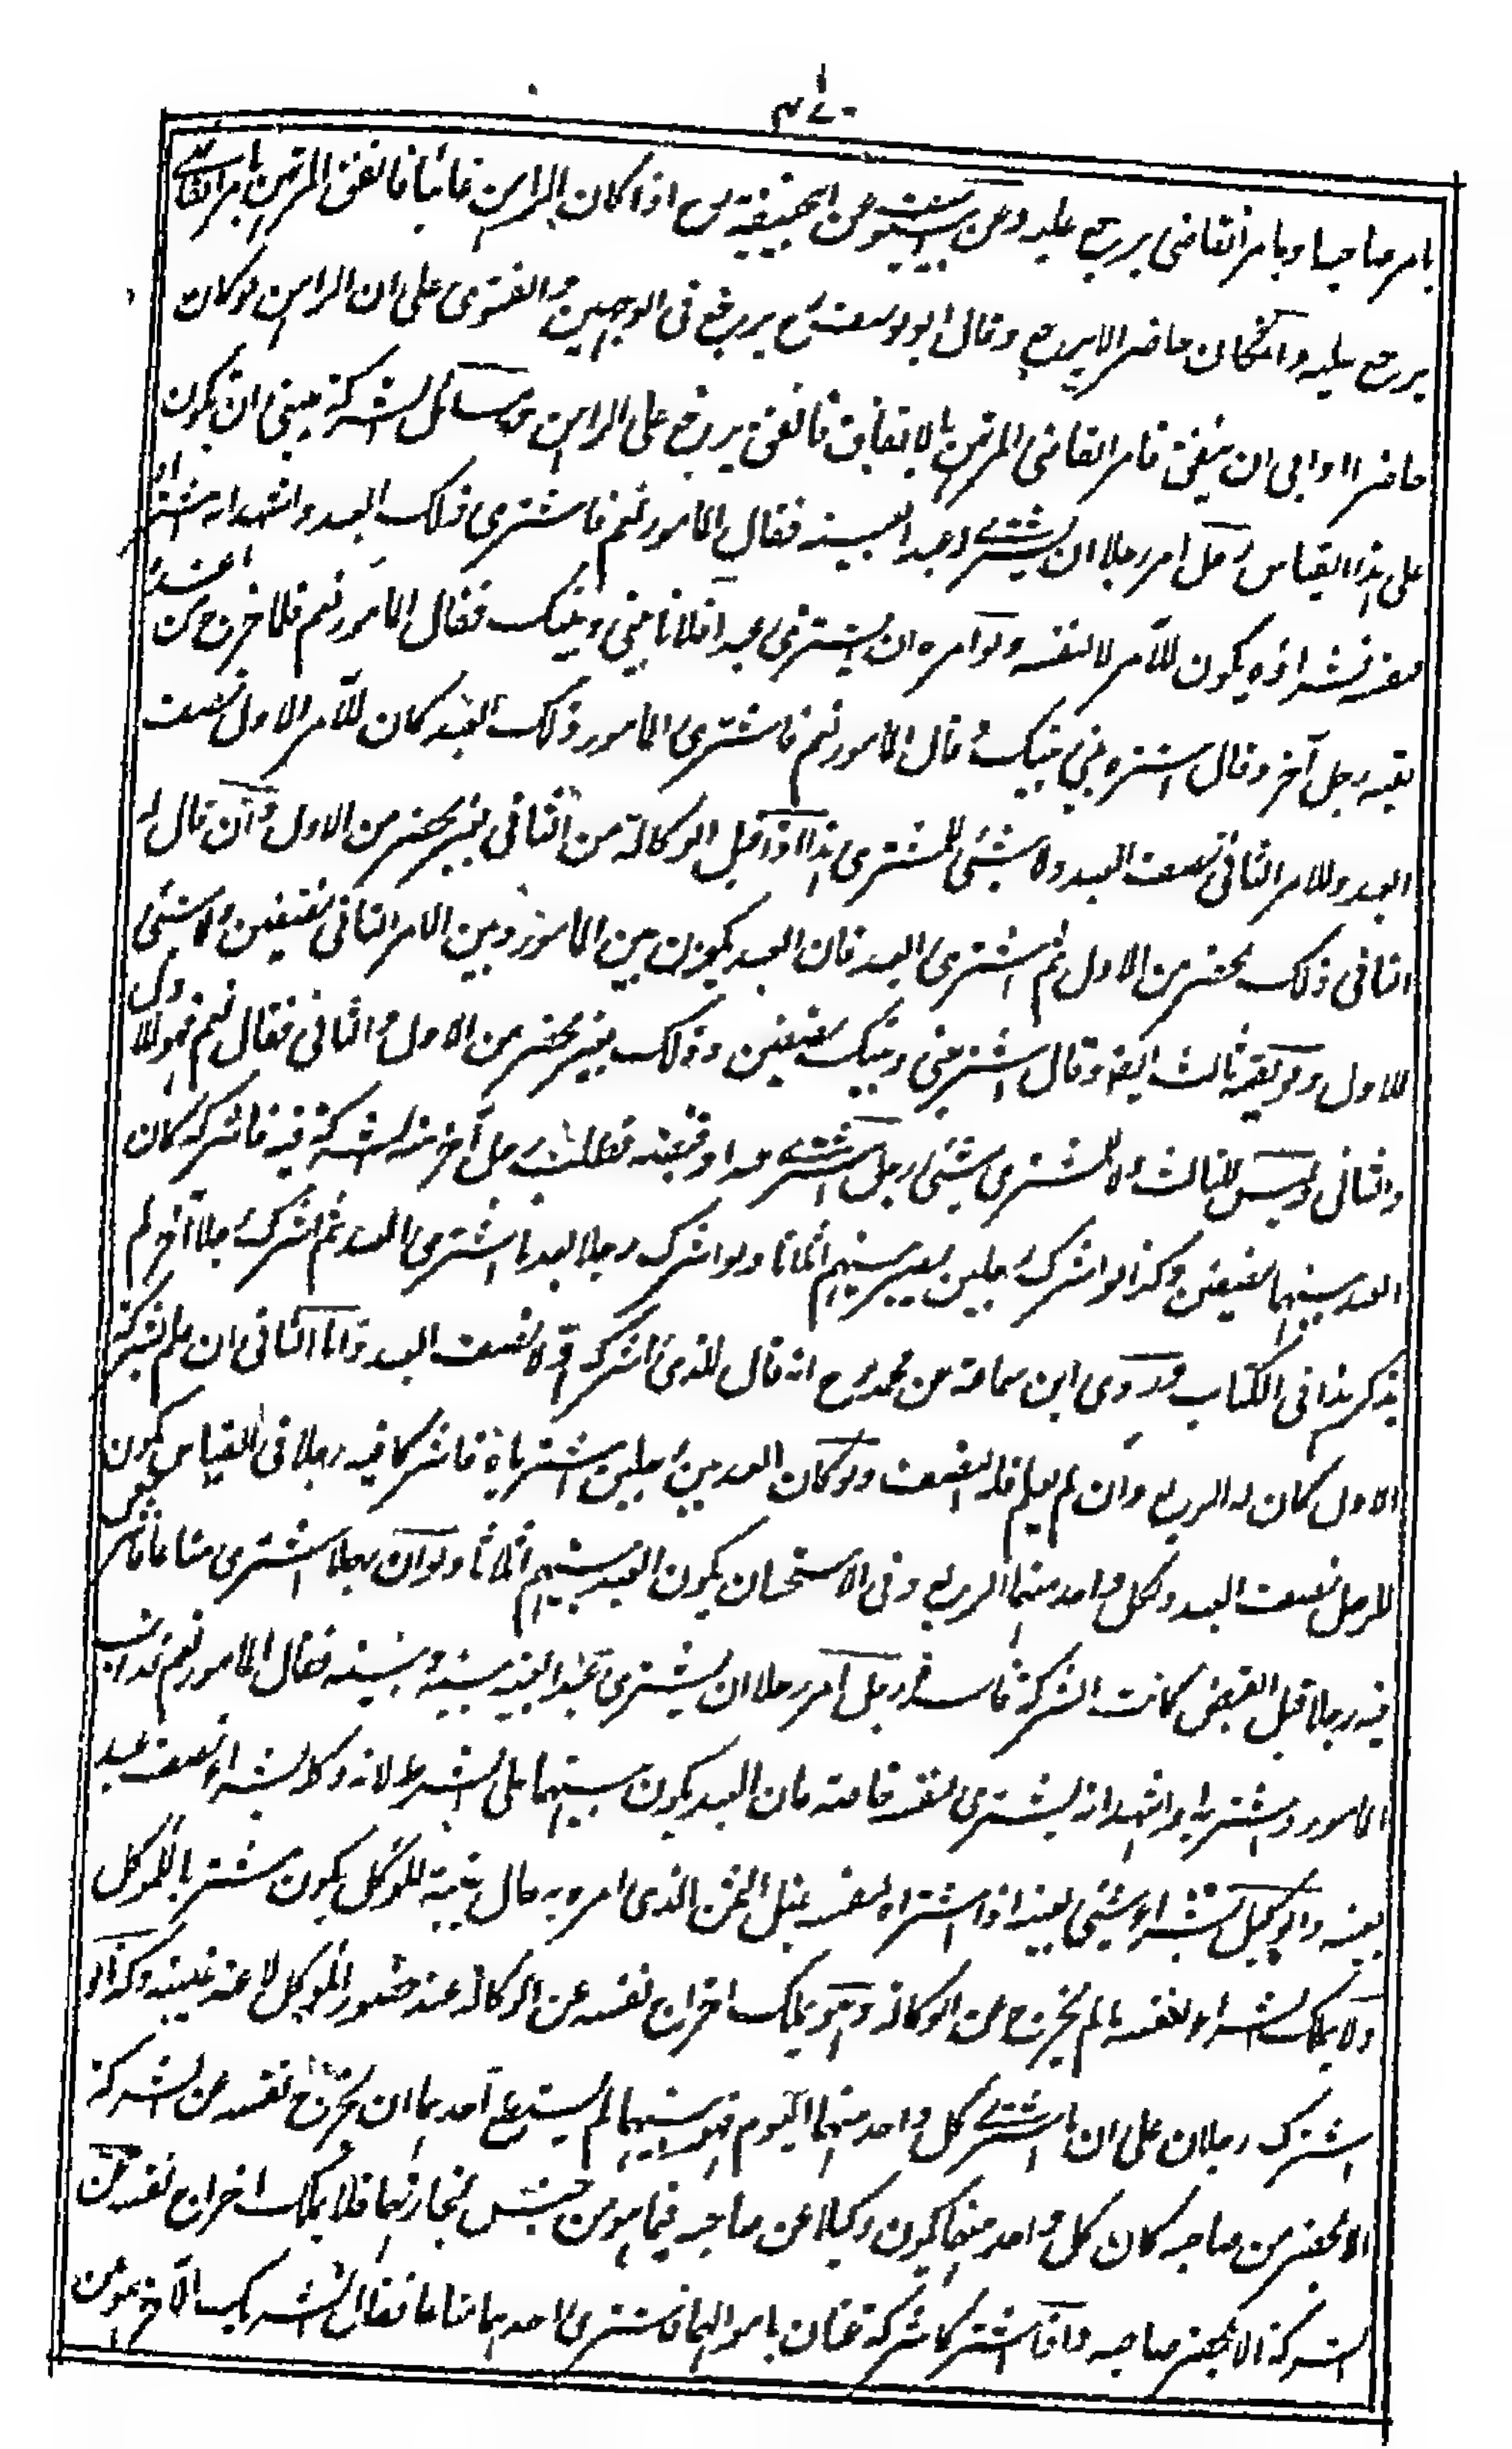 بامر صاحبها وبامر القاضي يرجع عليه وعن ابي يوسف عن ابي حنيفة رح اذا كان الراهن غائبا فانفق المرتهن بامر القاضي
يرجع عليه وان كان حاضرا لا يرجع وقال ابو يوسف رح يرجع في الوجهين والفتوى على ان الراهن لو كان
حاضرا وابى ان ينفق فامر القاضي المرتهن بالانفاق فانفق يرجع على الراهن ومسائل الشركة ينبغي ان يكون
على هذا القياس رجل امر رجلا ان يشتري عبدا بعينه فقال المامور نعم فاشترى ذلك العبد واشهد انه اشتراه
لنفسه فشراؤه يكون للآمر لا لنفسه ولو امره ان يشتري عبد فلان بيني وبينك فقال المامور نعم فلما خرج من عنده
لقيه رجل آخر وقال اشتره بيني وبينك قال المامور نعم فاشترى المامور ذلك العبد كان للآمر الاول نصف
العبد وللآمر الثاني نصف العبد ولا شيئ للمشتري هذا اذا قبل الوكالة من الثاني بغير محضر من الاول وان قال له
الثاني ذلك بمحضر من الاول ثم اشترى العبد فان العبد يكون بين المامور وبين الآمر الثاني نصفين ولا شيئ
للاول ولو لقيه ثالث ايضا وقال اشتر بيني وبينك نصفين وذلك بغير محضر من الاول والثاني فقال نعم فهو للاول
والثاني وليس للثالث ولا للمشتري شيئ رجل اشترى عبدا وقبضه فطلب رجل آخر منه الشركة فيه فاشركه كان
العبد بينهما نصفين وكذا لو اشرك رجلين يصير بينهم اثلاثا ولو اشرك رجلا بعد ما اشترى العبد ثم اشرك رجلا آخر لم
يذكر هذا في الكتاب وروى ابن سماعة عن محمد رح انه قال للذي اشركه اولا نصف العبد واما الثاني ان علم بشركة
الاول كان له الربع وان لم يعلم فله النصف ولو كان العبد بين رجلين اشترياه فاشركا فيه رجلا في القياس يكون
للرجل نصف العبد ولكل واحد منهما الربع وفي الاستحسان يكون العبد بينهم اثلاثا ولو ان رجلا اشترى متاعا فاشرك
فيه رجلا قبل القبض كانت الشركة فاسدة رجل آمر رجلا ان يشتري عبدا بعينه بينه وبينه فقال المامور نعم فذهب
المامور واشتراه واشهد انه يشتري لنفسه خاصة فان العبد يكون بينهما على الشرط لانه وكله بشراء نصف عبد
بعينه والوكيل بشراء شيئ بعينه اذا اشتراه لنفسه بمثل الثمن الذي امره به حال غيبة للموكل يكون مشتريا للموكل
ولا يملك الشراء لنفسه ما لم يخرج من الوكالة وهو يملك اخراج نفسه عن الوكالة عند حضور الموكل لا عند غيبته وكذا لو
اشترك رجلان على ان ما اشترى كل واحد منهما اليوم فهو بينهما لم يستطع احدهما ان يخرج نفسه من الشركة
الا بمحضر من صاحبه كان كل واحد منهما يكون وكيلا عن صاحبه فيما هو من جنس تجارتهما فلا يملك اخراج نفسه من
الشركة الا بمحضر صاحبه واذا اشتركا شركة عنان باموالهما فاشترى احدهما متاعا فقال الشريك الآخر هو من